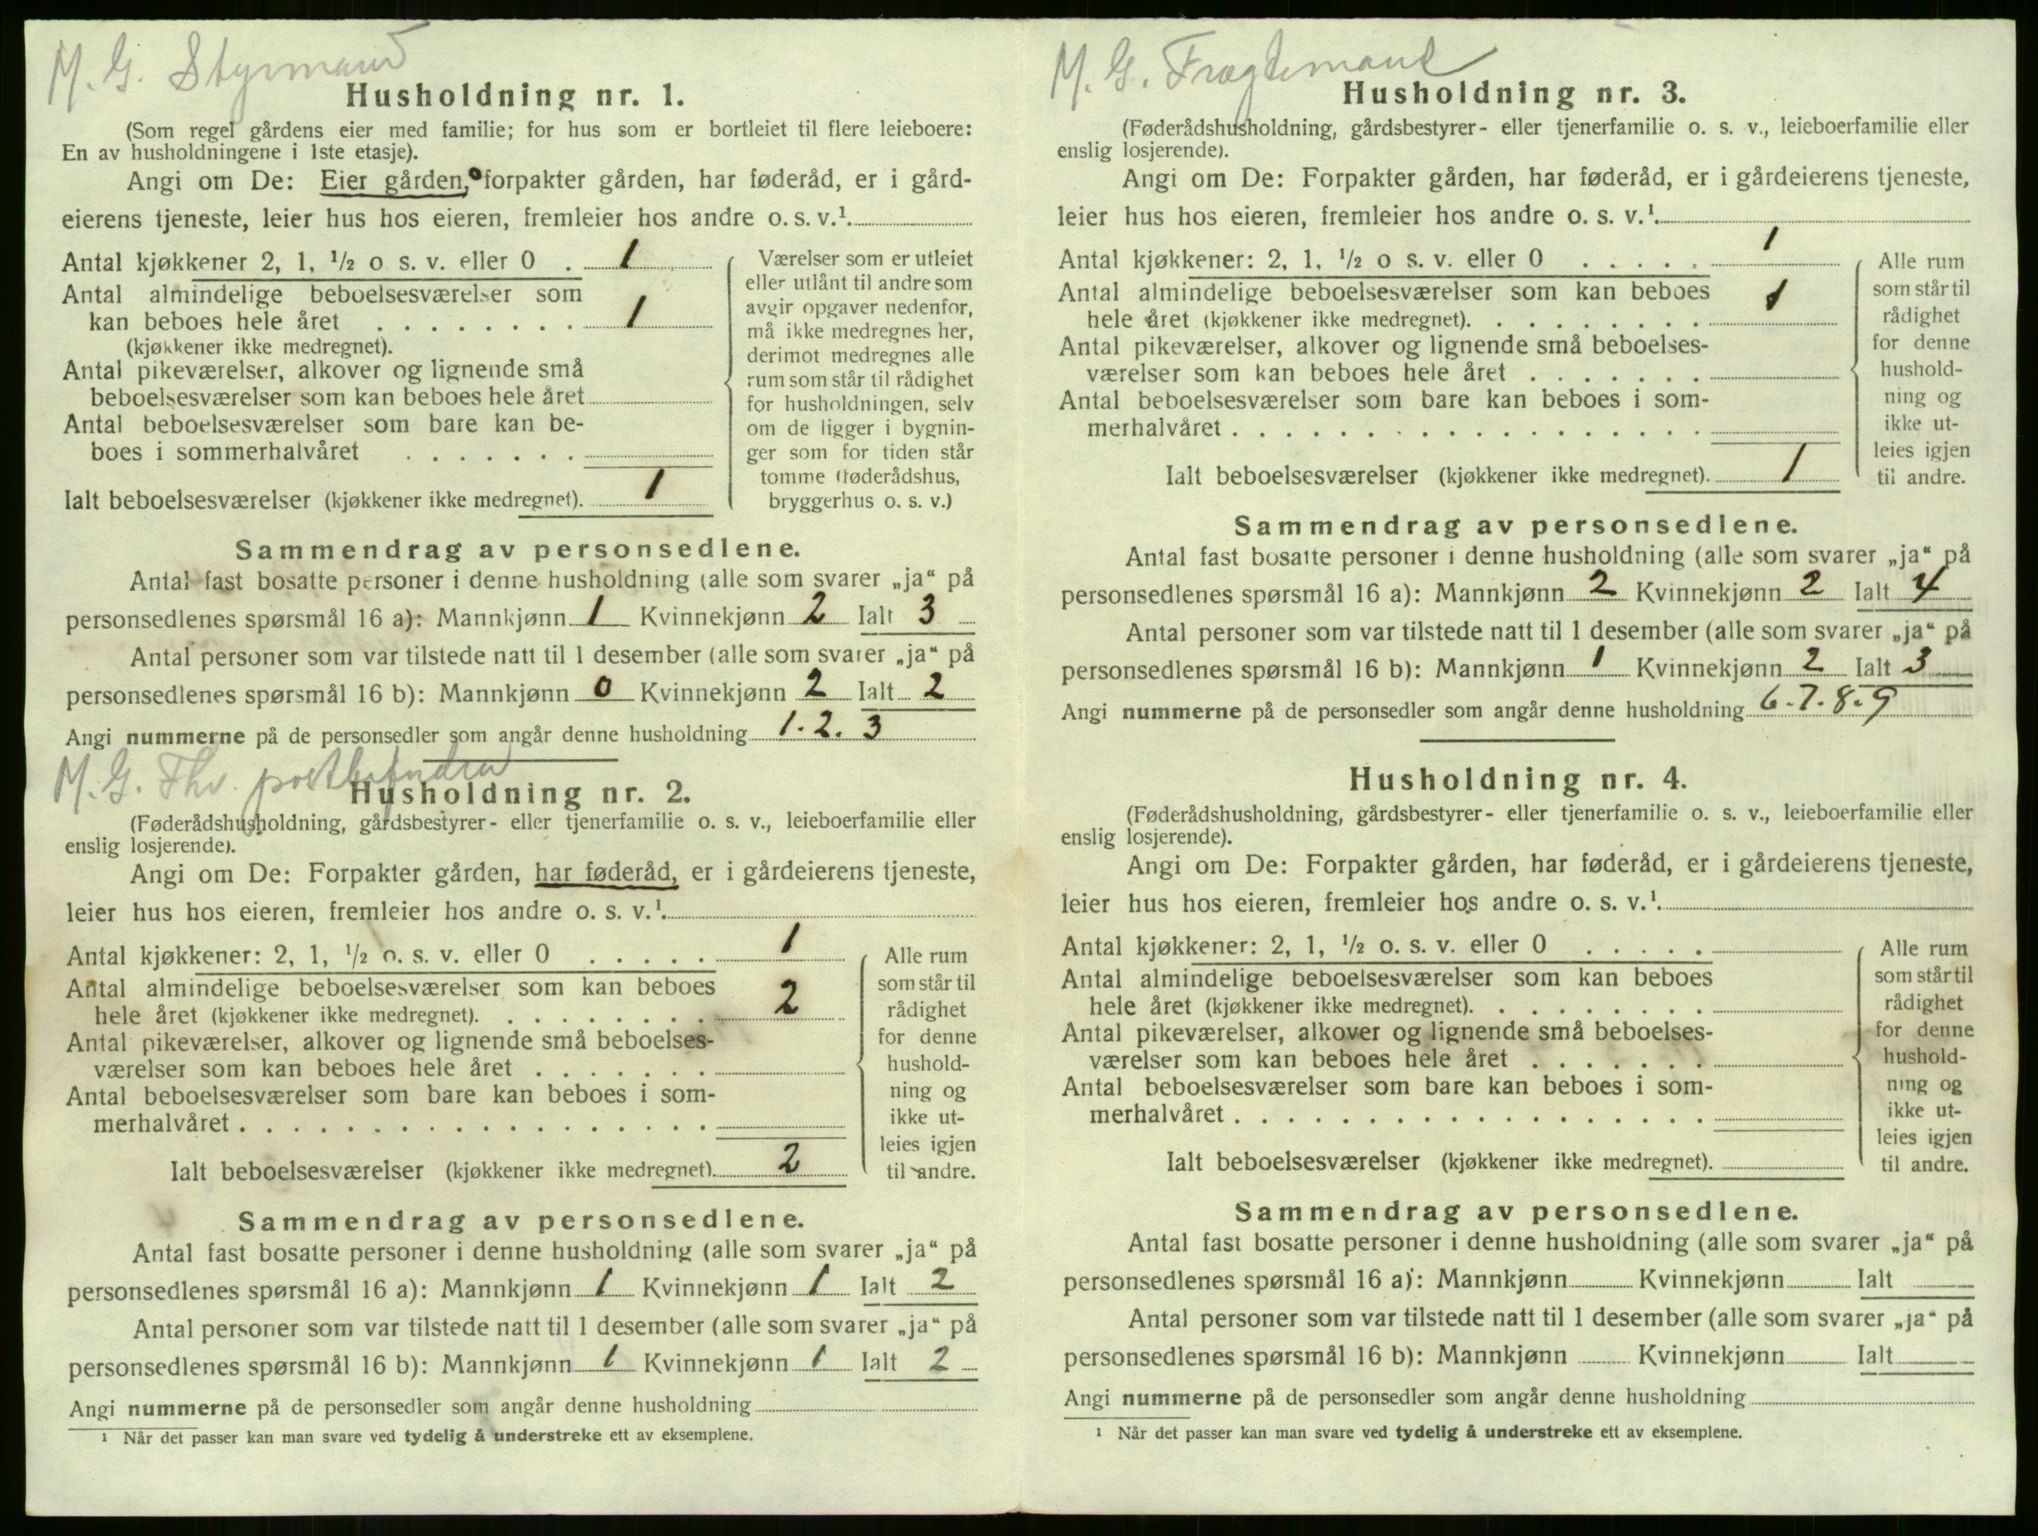 M. G. Styrmand
Husholdning nr. 1.
(Som regel gårdens eier med familie; for hus som er bortleiet til flere leieboere:
En av husholdningene i 1ste etasje).
Angi om De: Eier gården, forpakter gården, har føderåd, er i gård-
eierens tjeneste, leier hus hos eieren, fremleier hos andre o. s. v.¹
Antal kjøkkener 2, 1, ½ o s. v. eller 0 . 1
Antal almindelige beboelsesværelser som
kan beboes hele året . . . . . . . . 1
(kjøkkener ikke medregnet).
Antal pikeværelser, alkover og lignende små
beboelsesværelser som kan beboes hele året
Antal beboelsesværelser som bare kan be-
boes i sommerhalvåret . . . . . . .
Ialt beboelsesværelser (kjøkkener ikke medregnet). 1
Værelser som er utleiet
eller utlånt til andre som
avgir opgaver nedenfor,
må ikke medregnes her,
derimot medregnes alle
rum som står til rådighet
for husholdningen, selv
om de ligger i bygnin-
ger som for tiden står
tomme (føderådshus,
bryggerhus o. s. v.)
Sammendrag av personsedlene.
Antal fast bosatte personer i denne husholdning (alle som svarer „ja“ på
personsedlenes spørsmål 16 a): Mannkjønn 1 Kvinnekjønn 2 Ialt 3
Antal personer som var tilstede natt til 1 desember (alle som svarer „ja“ på
personsedlenes spørsmål 16 b): Mannkjønn 0 Kvinnekjønn 2 Ialt 2
Angi nummerne på de personsedler som angår denne husholdning 1. 2. 3
M. G. Fhv.
Husholdning nr. 2.
(Føderådshusholdning, gårdsbestyrer- eller tjenerfamilie o. s. v., leieboerfamilie eller
enslig losjerende).
Angi om De: Forpakter gården, har føderåd, er i gårdeierens tjeneste,
leier hus hos eieren, fremleier hos andre o. s. v.¹
Antal kjøkkener: 2, 1, ½ o. s. v. eller 0 . . . . . 1
Antal almindelige beboelsesværelser som kan beboes
hele året (kjøkkener ikke medregnet). . . . . . . . . 2
Antal pikeværelser, alkover og lignende små beboelses-
værelser som kan beboes hele året . . . . . . .
Antal beboelsesværelser som bare kan beboes i som-
merhalvåret . . . . . . . . . . . . . . . . . .
Ialt beboelsesværelser (kjøkkener ikke medregnet). 2
Alle rum
som står til
rådighet
for denne
hushold-
ning og
ikke ut-
leies igjen
til andre.
Sammendrag av personsedlene.
Antal fast bosatte personer i denne husholdning (alle som svarer „ja“ på
personsedlenes spørsmål 16 a): Mannkjønn 1 Kvinnekjønn 1 Ialt 2
Antal personer som var tilstede natt til 1 desember (alle som svarer „ja“ på
personsedlenes spørsmål 16 b): Mannkjønn 1 Kvinnekjønn 1 Ialt 2
Angi nummerne på de personsedler som angår denne husholdning
¹ Når det passer kan man svare ved tydelig å understreke ett av eksemplene.
M. G. Fragtemand
Husholdning nr. 3.
(Føderådshusholdning, gårdsbestyrer- eller tjenerfamilie o. s. v., leieboerfamilie eller
enslig losjerende).
Angi om De: Forpakter gården, har føderåd, er i gårdeierens tjeneste,
leier hus hos eieren, fremleier hos andre o. s. v.¹
Antal kjøkkener: 2, 1, ½ o s. v. eller 0 . . . . . 1
Antal almindelige beboelsesværelser som kan beboes
hele året (kjøkkener ikke medregnet). . . . . . . . . 1
Antal pikeværelser, alkover og lignende små beboelses-
værelser som kan beboes hele året . . . . . . .
Antal beboelsesværelser som bare kan beboes i som-
merhalvåret . . . . . . . . . . . . . . . . . .
Ialt beboelsesværelser (kjøkkener ikke medregnet). 1
Alle rum
som står til
rådighet
for denne
hushold-
ning og
ikke ut-
leies igjen
til andre.
Sammendrag av personsedlene.
Antal fast bosatte personer i denne husholdning (alle som svarer „ja“ på
personsedlenes spørsmål 16 a): Mannkjønn 2 Kvinnekjønn 2 Ialt 4
Antal personer som var tilstede natt til 1 desember (alle som svarer „ja“ på
personsedlenes spørsmål 16 b): Mannkjønn 1 Kvinnekjønn 2 Ialt 3
Angi nummerne på de personsedler som angår denne husholdning 6. 7. 8. 9
Husholdning nr. 4.
(Føderådshusholdning, gårdsbestyrer- eller tjenerfamilie o. s. v., leieboerfamilie eller
enslig losjerende).
Angi om De: Forpakter gården, har føderåd, er i gårdeierens tjeneste,
leier hus hos eieren, fremleier hos andre o. s. v.¹
Antal kjøkkener: 2, 1, ½ o. s. v. eller 0 . . . . .
Antal almindelige beboelsesværelser som kan beboes
hele året (kjøkkener ikke medregnet). . . . . . . . .
Antal pikeværelser, alkover og lignende små beboelses-
værelser som kan beboes hele året . . . . . . .
Antal beboelsesværelser som bare kan beboes i som-
merhalvåret . . . . . . . . . . . . . . . . . .
Ialt beboelsesværelser (kjøkkener ikke medregnet).
Alle rum
som står til
rådighet
for denne
hushold-
ning og
ikke ut-
leies igjen
til andre.
Sammendrag av personsedlene.
Antal fast bosatte personer i denne husholdning (alle som svarer „ja“ på
personsedlenes spørsmål 16 a): Mannkjønn Kvinnekjønn Ialt
Antal personer som var tilstede natt til 1 desember (alle som svarer „ja“ på
personsedlenes spørsmål 16 b): Mannkjønn Kvinnekjønn Ialt
Angi nummerne på de personsedler som angår denne husholdning
¹ Når det passer kan man svare ved tydelig å understreke ett av eksemplene.